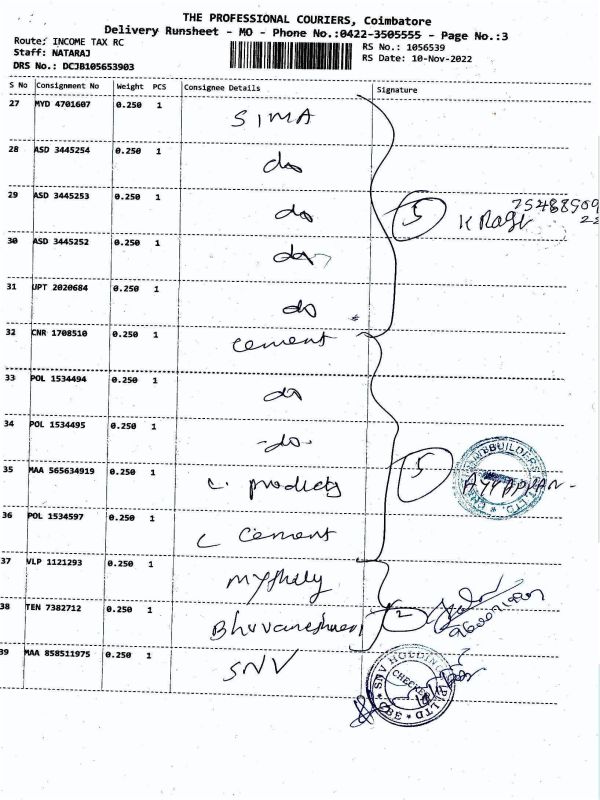 THE PROFESSIONAL COURIERS, Coimbatore
Delivery Runsheet - MO - Phone No.:0422-3505555 - Page No.:3
Route: INCOME TAX RC
RS No.: 1056539
Staff: NATARAJ
RS Date: 10-Nov-2022
DRS No.: DCJB105653903
S No Consignment No Weight PCS Consignee Details Signature
27 MYD 4701607 0.250 1 SIMA
28 ASD 3445254 0.250 1 do
29 ASD 3445253 0.250 1 do
5 K Ragu
30 ASD 3445252 0.250 1 do
31 UPT 2020684 0.250 1 do
32 CNR 1708510 0.250 1 cement
33 POL 1534494 0.250 1 do
34 POL 1534495 0.250 1 -do-
35 MAA 565634919 0.250 1 c. products 5 AYYAPPAN-
36 POL 1534597 0.250 1 c cement
37 VLP 1121293 0.250 1
38 TEN 7382712 0.250 1 Bhuvaneshwari 2
39 MAA 858511975 0.250 1 SNV
SNV HOLDING
CHECKED